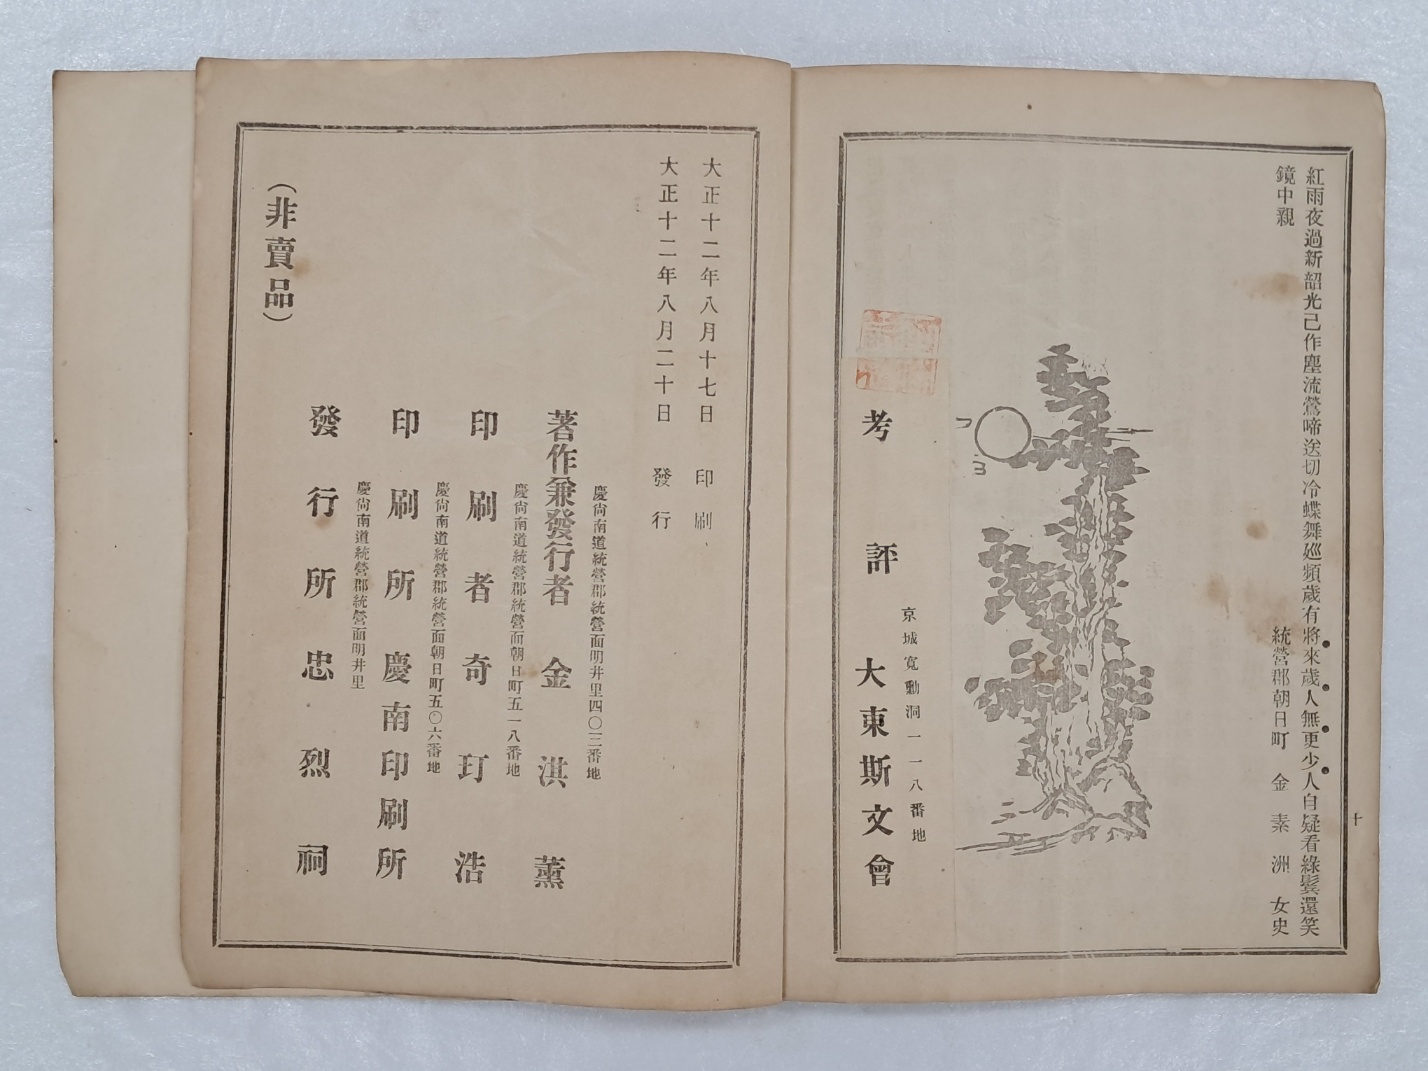 紅雨夜過新韶光己作塵流鶯啼送切冷蝶舞廵頻歲有將來歲人無更少人自疑看綠鬂還笑
鏡中親
統營郡朝日町 金素洲女史
十
京城寬勳洞一一八番地
考評 大東斯文會
大正十二年八月十七日 印刷
大正十二年八月二十日 發行
慶尙南道統營郡統營面明井里四〇三番地
著作兼發行者 金洪薰
慶尙南道統營郡統營面朝日町五一八番地
印刷者 奇玎浩
慶尙南道統營郡統營面朝日町五〇六番地
印刷所 慶南印刷所
慶尙南道統營郡統營面明井里
發行所 忠烈祠
（非賣品）